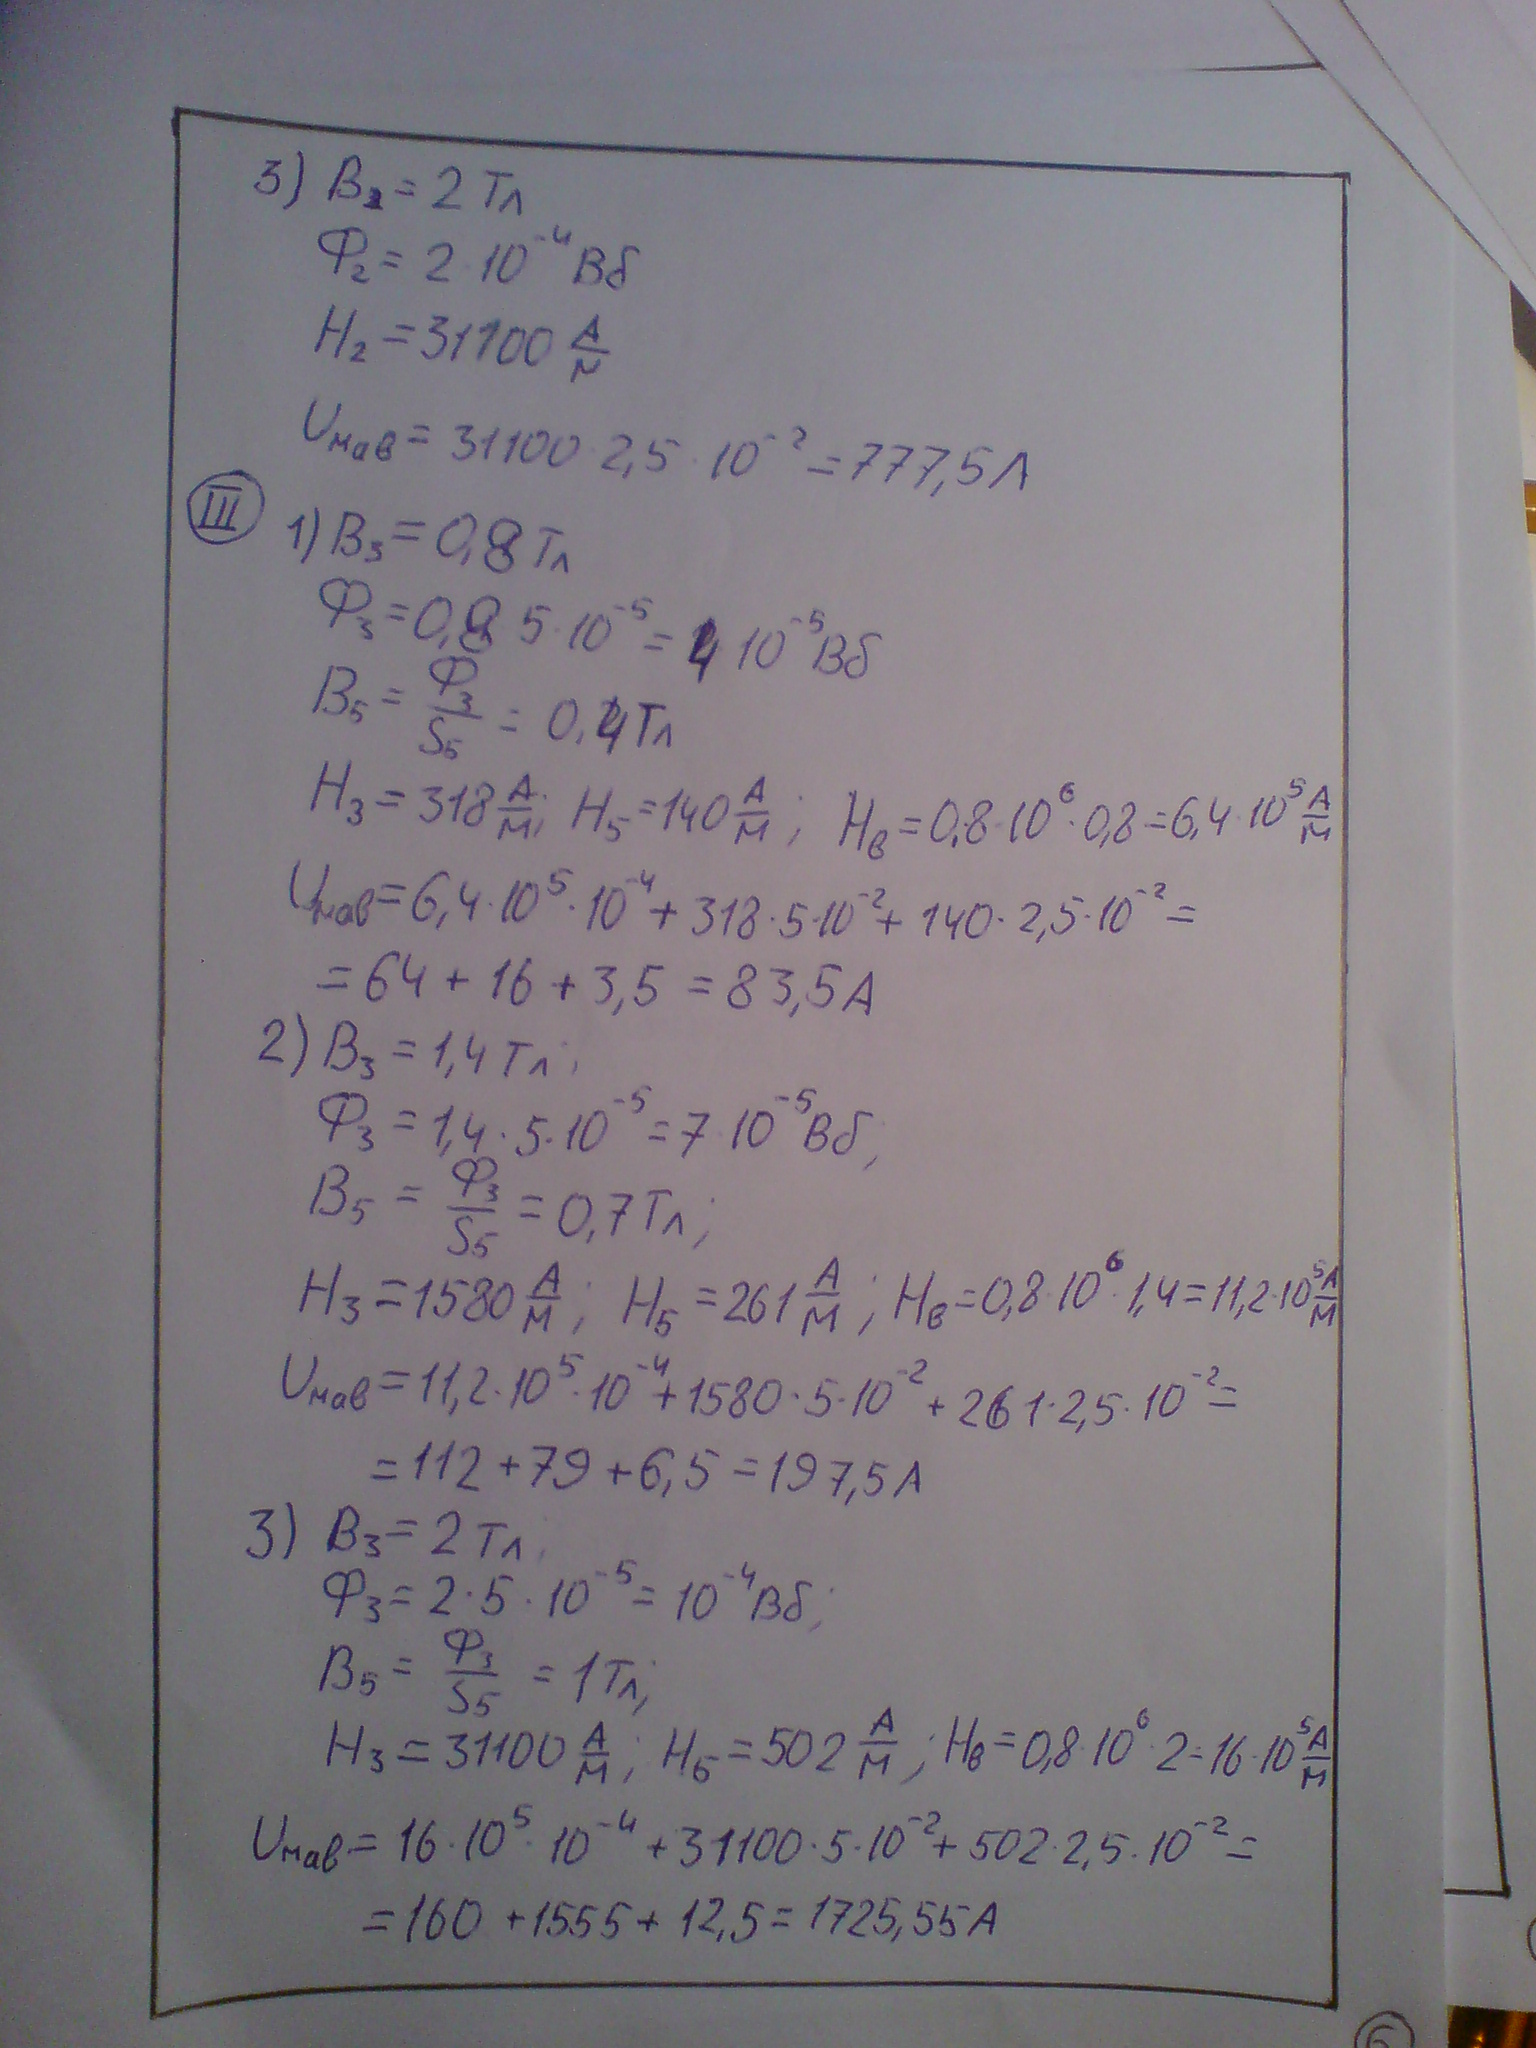 3) B₂ = 2 Тл
Ф₂ = 2·10⁻⁴ Вб
H₂ = 31100 А/м
Uмав = 31100·2,5·10⁻² = 777,5 А
III
1) B₃ = 0,8 Тл
Ф₃ = 0,8 5·10⁻⁵ = 4 10⁻⁵ Вб
B₅ = Ф₃/S₅ = 0,4 Тл
H₃ = 318 А/м; H₅ = 140 А/м; Hв = 0,8·10⁶·0,8 = 6,4·10⁵ А/м
Uмав = 6,4·10⁵·10⁻⁴ + 318·5·10⁻² + 140·2,5·10⁻² =
= 64 + 16 + 3,5 = 83,5 А
2) B₃ = 1,4 Тл;
Ф₃ = 1,4·5·10⁻⁵ = 7·10⁻⁵ Вб;
B₅ = Ф₃/S₅ = 0,7 Тл;
H₃ = 1580 А/м; H₅ = 261 А/м; Hв = 0,8·10⁶·1,4 = 11,2·10⁵ А/м
Uмав = 11,2·10⁵·10⁻⁴ + 1580·5·10⁻² + 261·2,5·10⁻² =
= 112 + 79 + 6,5 = 197,5 А
3) B₃ = 2 Тл;
Ф₃ = 2·5·10⁻⁵ = 10⁻⁴ Вб;
B₅ = Ф₃/S₅ = 1 Тл;
H₃ = 31100 А/м; H₅ = 502 А/м; Hв = 0,8·10⁶·2 = 16·10⁵ А/м
Uмав = 16·10⁵·10⁻⁴ + 31100·5·10⁻² + 502·2,5·10⁻² =
= 160 + 1555 + 12,5 = 1725,55 А